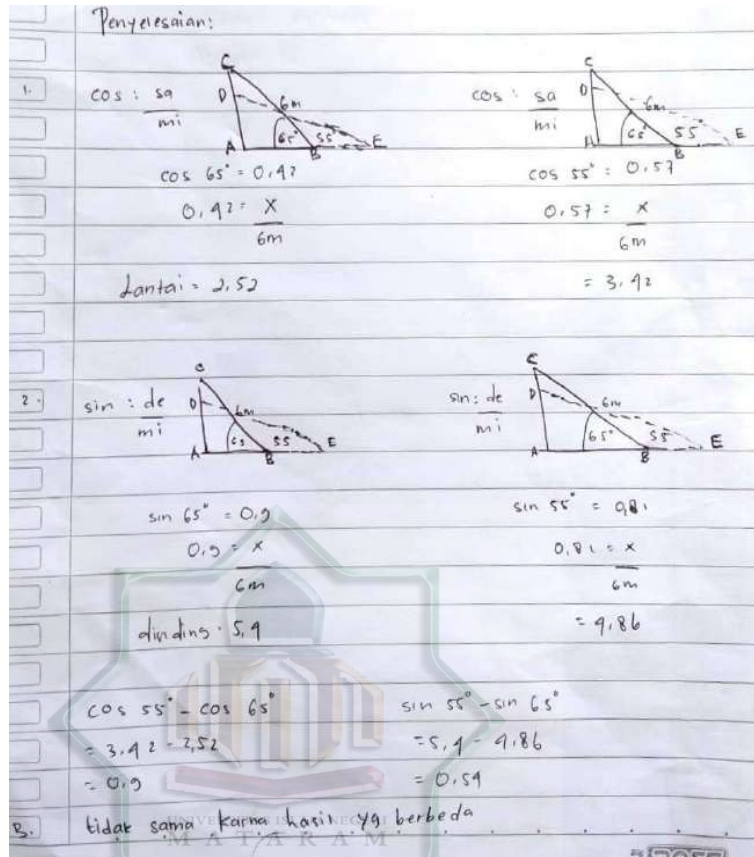 Penyelesaian:
1. cos : sa/mi
C
D
6m
65° 55°
A B E
cos 65° = 0,42
0,42 = x/6m
Lantai = 2,52
cos : sa/mi
C
D
6m
65° 55
A B E
cos 55° = 0,57
0,57 = x/6m
= 3,42
2. sin : de/mi
C
D
6m
65 55
A B E
sin 65° = 0,9
0,9 = x/6m
dinding = 5,4
sin : de/mi
C
D
6m
65° 55°
A B E
sin 55° = 0,81
0,81 = x/6m
= 4,86
cos 55° - cos 65°
= 3,42 - 2,52
= 0,9
sin 55° - sin 65°
= 5,4 - 4,86
= 0,54
B. tidak sama karna hasil yg berbeda
UNIVERSITAS ISLAM NEGERI
MATARAM